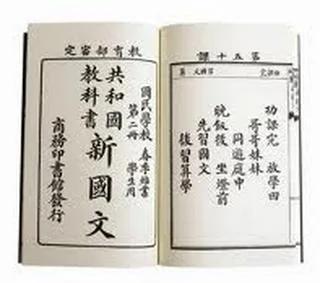 教育部審定
國民學校 春季始業
第二冊 學生用
共和國
教科書
新國文
商務印書館發行
第五十課
功課完 放學回
哥哥妹妹
同遊庭中
晚飯後 坐燈前
先習國文
後習算學